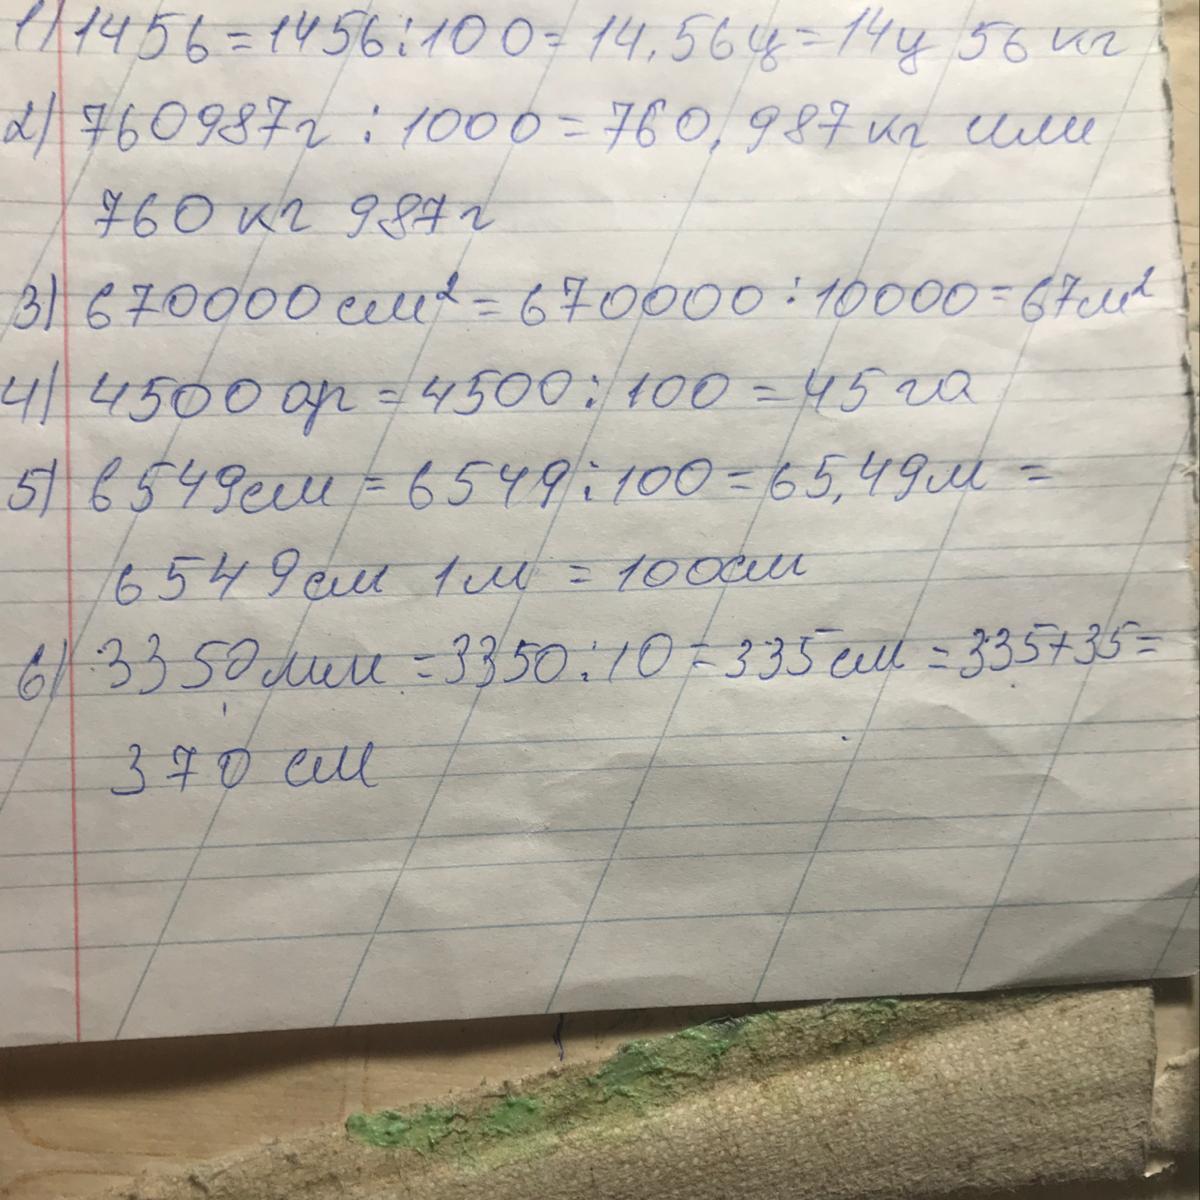 1) 1456 = 1456 : 100 = 14,56 ц = 14 ц 56 кг
2) 760987 г : 1000 = 760,987 кг или
760 кг 987 г
3) 670000 см² = 670000 : 10000 = 67 м²
4) 4500 ар = 4500 : 100 = 45 га
5) 6549 см = 6549 : 100 = 65,49 м =
6549 см 1 м = 100 см
6) 3350 мм = 3350 : 10 = 335 см = 335 + 35 =
370 см